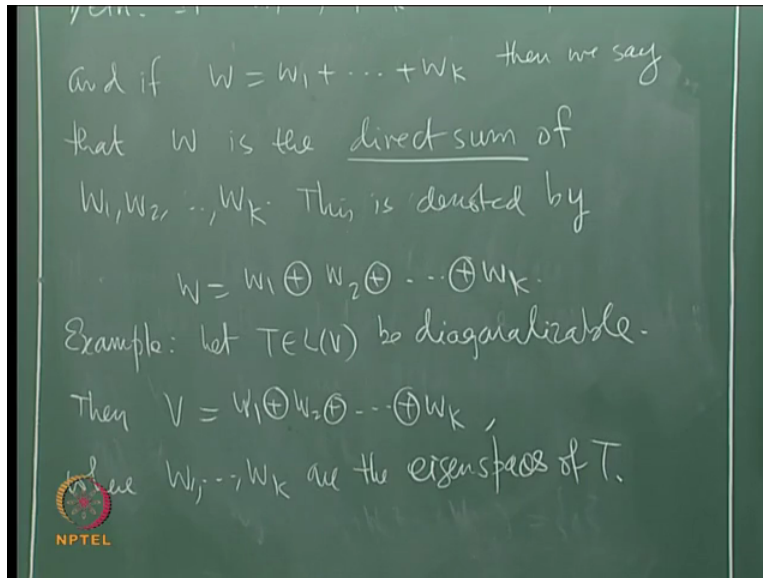 and if W = W1 + ··· + WK then we say
that W is the direct sum of
W1, W2, .., WK. This is denoted by
W = W1 ⊕ W2 ⊕ ··· ⊕ WK.
Example: Let T ∈ L(V) be diagonalizable.
Then V = W1 ⊕ W2 ⊕ ··· ⊕ WK,
where W1, ··, WK are the eigenspaces of T.
NPTEL